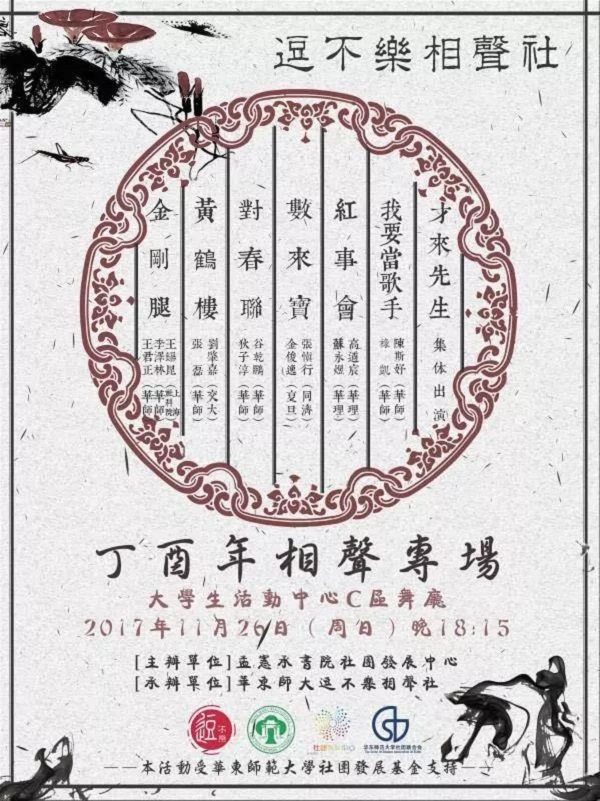 逗不樂相聲社
才來先生 集体出演
我要當歌手 陳斯妤（華師）
凱（華師）
紅事會 高道宸（華理）
蘇永煜（華理）
數來寶 張慎行（同濟）
金俊逸（复旦）
對春聯 谷乾鵬（華師）
狄子淳（華師）
黃鶴樓 劉肇嘉（交大）
張磊（華師）
金剛腿
李澤林（華師）
王君正（華師）
丁酉年相聲專場
大學生活動中心C區舞廳
2017年11月26日（周日）晚18:15
[主辦單位]孟憲承書院社團發展中心
[承辦單位]華東師大逗不樂相聲社
逗不樂
本活動受華東師範大學社團發展基金支持